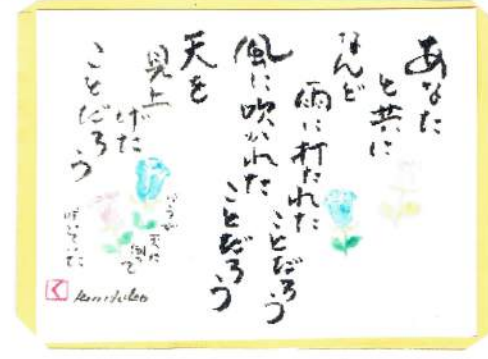 あなた
と共に
なんど
雨に打たれた
ことだろう
風に吹かれた
ことだろう
天を
見上
げた
ことだろう
天に
咲いていた